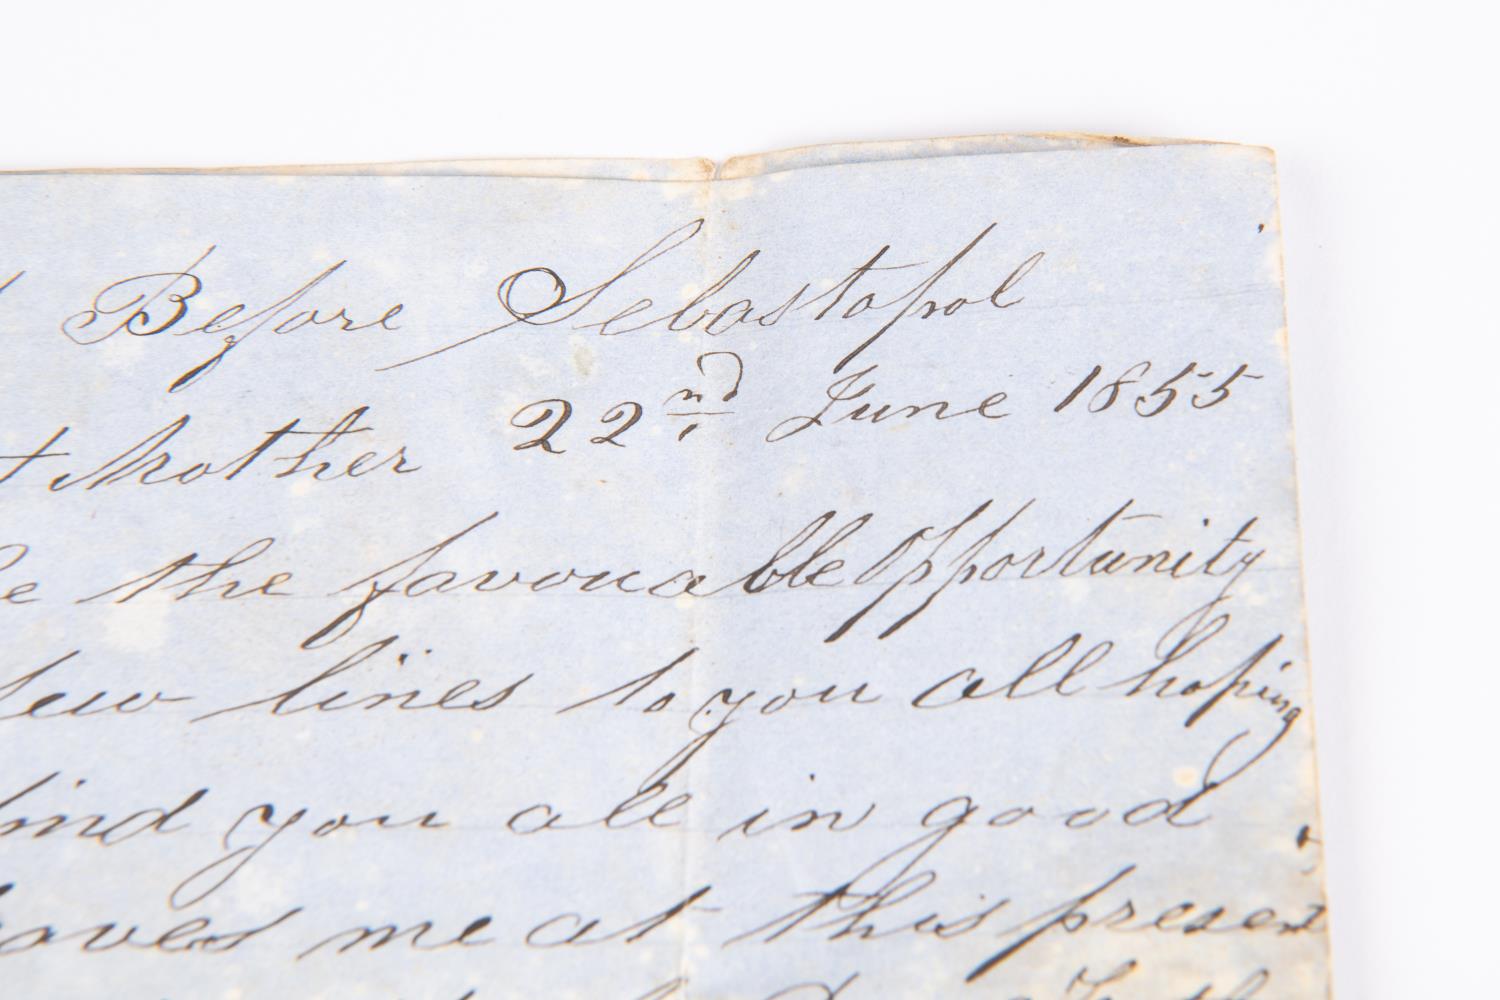 Before Sebastopol
22nd June 1855
Mother
the favourable opportunity
few lines to you all hoping
find you all in good
leaves me at this present